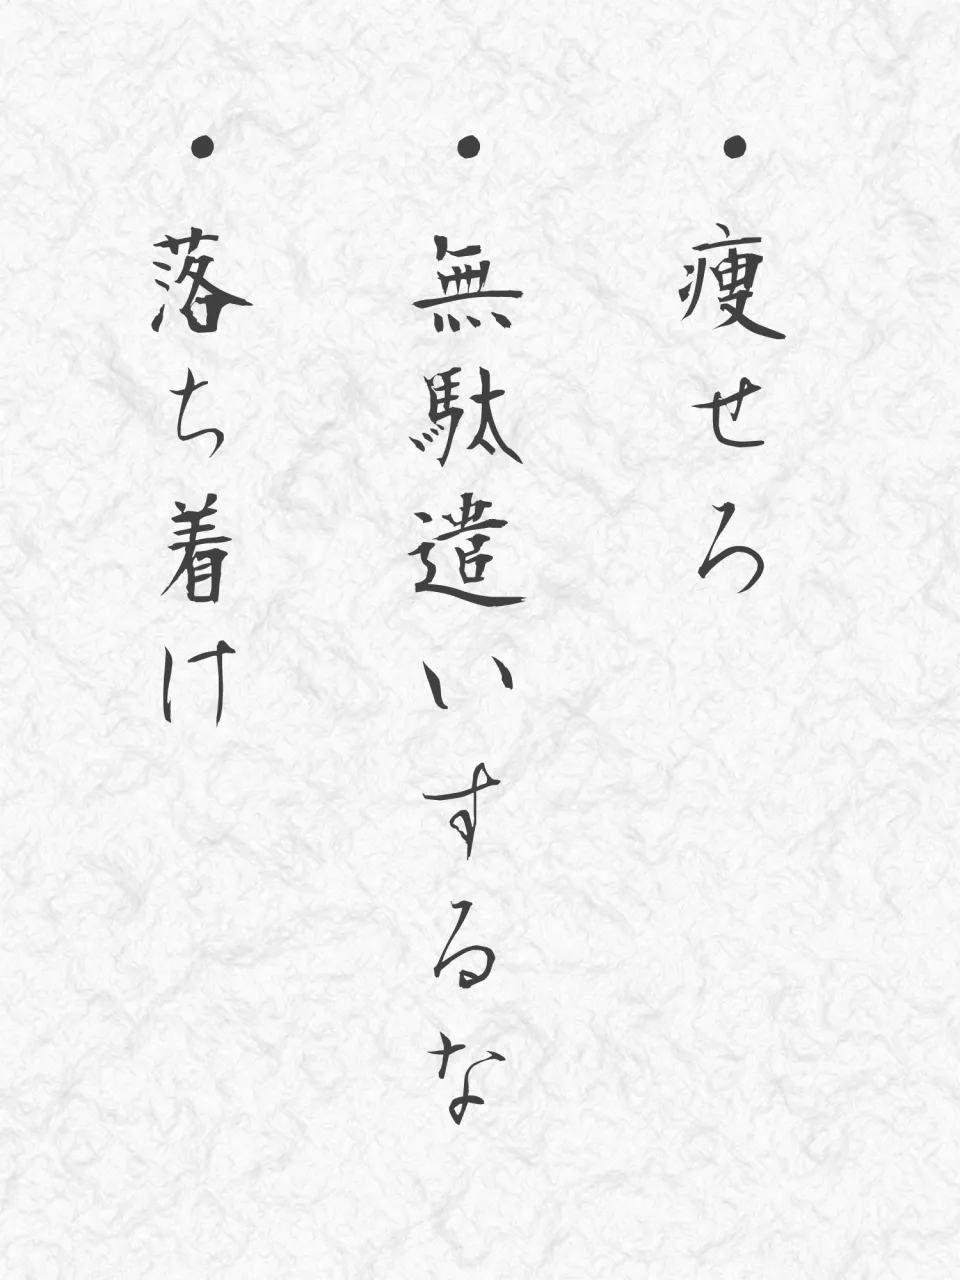 ・痩せろ
・無駄遣いするな
・落ち着け